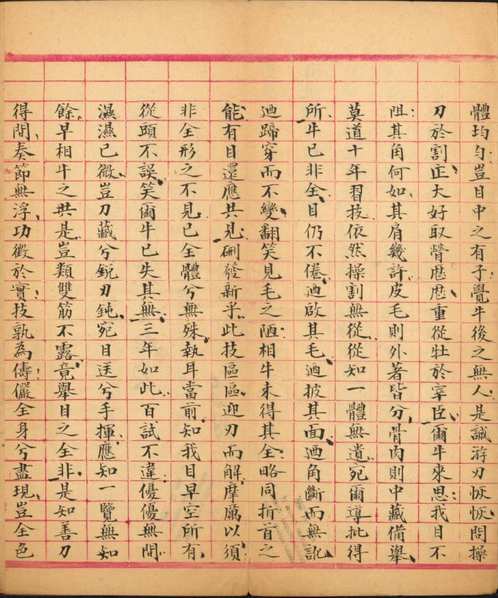 體均勻豈目中之有子覺牛後之無人是誠游刃恢恢問操
刀於割正大好取膋麿麿重從牡於宰臣爾牛來思我目不
阻其角何如其肩幾許皮毛則外著皆分骨肉則中藏備舉
莫道十年習技依然操割無從從知一體無遺宛爾導批得
所牛已非全目仍不倦迺啟其毛迺披其面迺角斷而無訛
迺蹄穿而不變翻笑見毛之陋相牛未得其全略同折首之
能有目還應其見硎發新乎此技區區迎刃而解摩厲以須
非全形之不見已全體兮無殊執耳當前知我目早空所有
從頭不誤笑爾牛已失其無三年如此百試不違優優無間
濕濕已微豈刀藏兮銳刃鈍宛目迋兮手揮應知一覽無知
餘早相牛之與是豈類雙筋不露竟舉目之全非是知善刀
得間奏節無浮功徵於實技孰為儔儼全身兮盡現豈全色